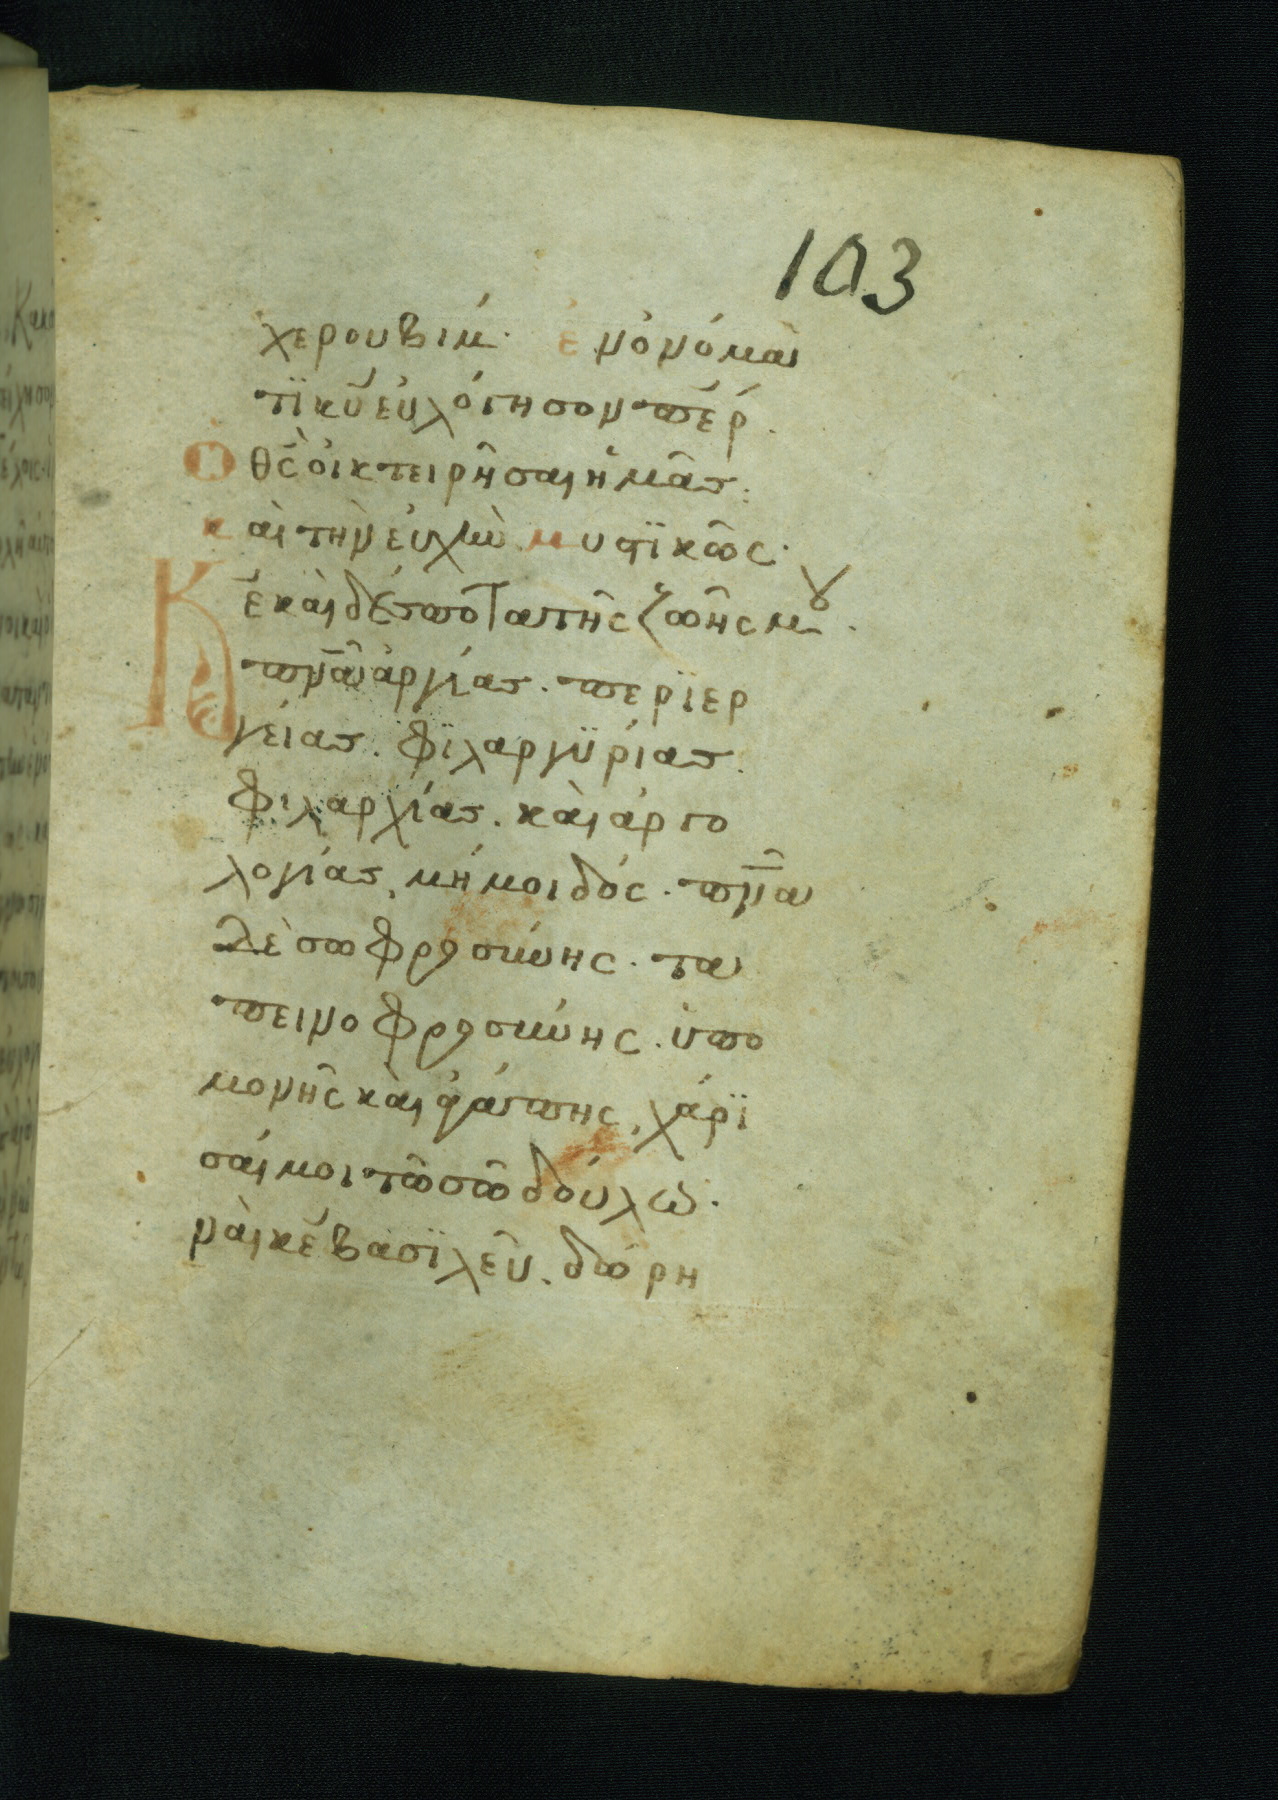 103
χερουβὶμ· ἐν ὀνόματι
τϊ κ̅υ̅ εὐλόγησον π̅ε̅ρ̅.
Ὁ θ̅ς̅ οἰκτειρῆσαι ἡμᾶς:
καὶ τὴν εὐχὴν μυστϊκῶς·
Κ̅ε̅ καὶ δέσποτα τῆς ζωῆς μου.
π̅ν̅α̅ ἀργίας. περϊερ
γείας. φϊλαργϋρίας.
φιλαρχίας. καὶ ἀργο
λογίας, μή μοι δός. π̅ν̅α̅
δὲ σωφροσύνης. τα
πεινοφροσύνης. ὑπο
μονῆς καὶ ἀγάπης, χάρϊ
σαί μοι τῶ σῶ δούλω.
ναὶ κ̅ε̅ βασϊλεῦ. δώρη